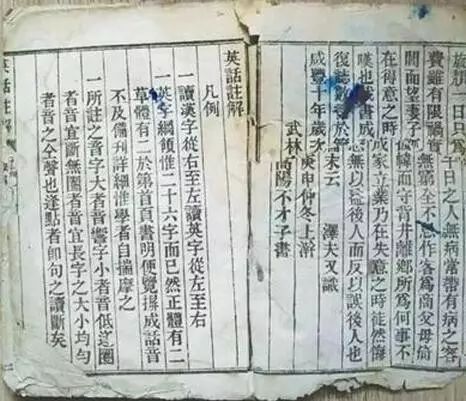 一日只為千日之人無病常帶有病之容
費雖有限禍實無窮全不思作客為商父母倚
閭而望妻子倚幃而守背井離鄉所為何事不
在得意之時成家立業乃在失意之時徒然悔
嘆也哉書成無以益後人而反以誤後人也
復誌數言於篇末云 澤夫又識
咸豐十年歲次庚申仲冬上澣
武林高陽不才子書
英話註解
凡例
一讀漢字從右至左讀英字從左至右
一英字綱領惟二十六字而已然正體有二
草體有二於第首頁書明便覽摒成話音
不及備刊詳細惟學者自揣摩之
一所註之音字大者音響字小者音低逢圈
者音宜斷無圈者音宜長字之大小均勻
者音之全聲也逢點者卽句之讀斷矣
英話註解